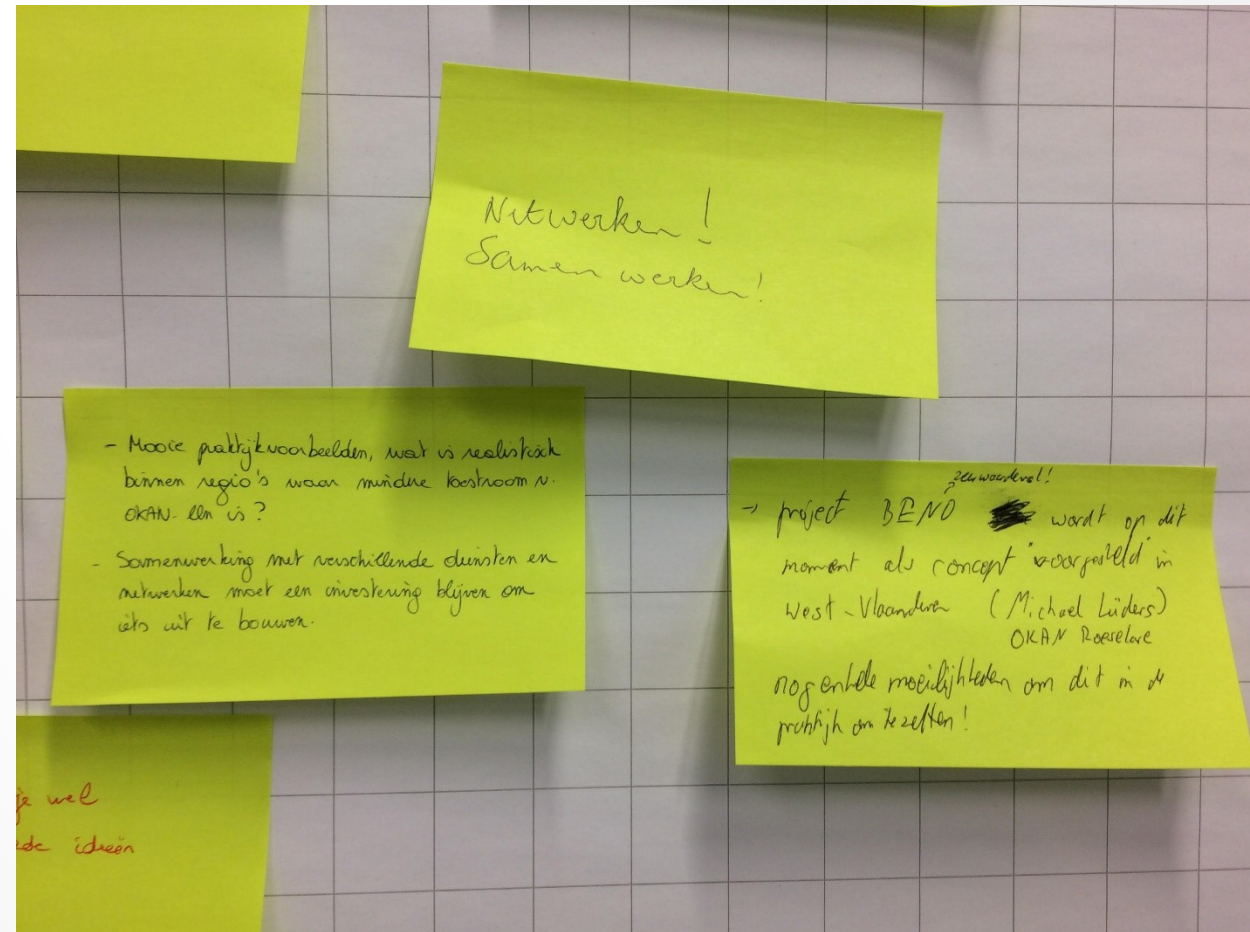 Netwerken!
Samen werken!
- Mooie praktijkvoorbeelden, wat is realistisch
binnen regio's waar mindere toestroom v.
OKAN-lln is?
- Samenwerking met verschillende diensten en
netwerken moet een investering blijven om
iets uit te bouwen.
zeer waardevol!
→ project BENO wordt op dit
moment als concept "voorgesteld" in
West-Vlaanderen (Michael Lüders)
OKAN Roeselare
nog enkele moeilijkheden om dit in de
praktijk om te zetten!
je wel
ideeën